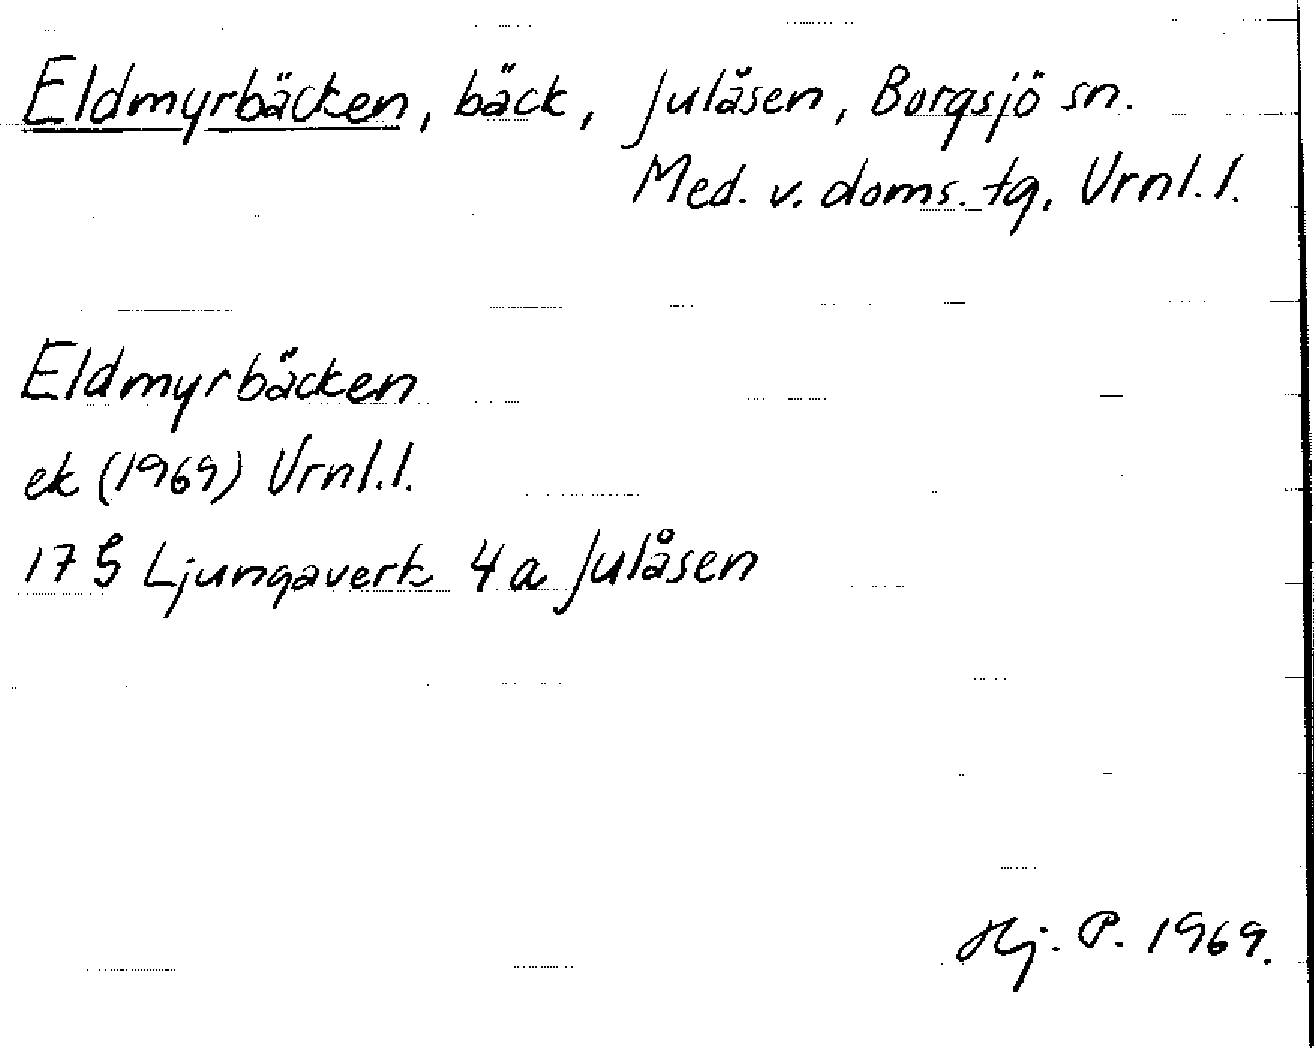 Eldmyrbäcken, bäck, Julåsen, Borgsjö sn.
Med. v. doms. tg. Vrnl. l.
Eldmyrbäcken
ek (1969) Vrnl. l.
17 G Ljungaverk 4 a Julåsen
Hj. P. 1969.